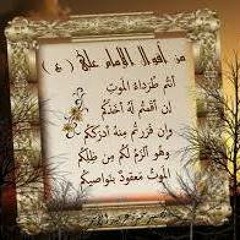 من أقوال الإمام علي (ع)
أنتم طرداء الموت
إن أقمتم له أخذكم
وإن فررتم منه أدرككم
وهو ألزم لكم من ظلكم
الموت معقود بنواصيكم